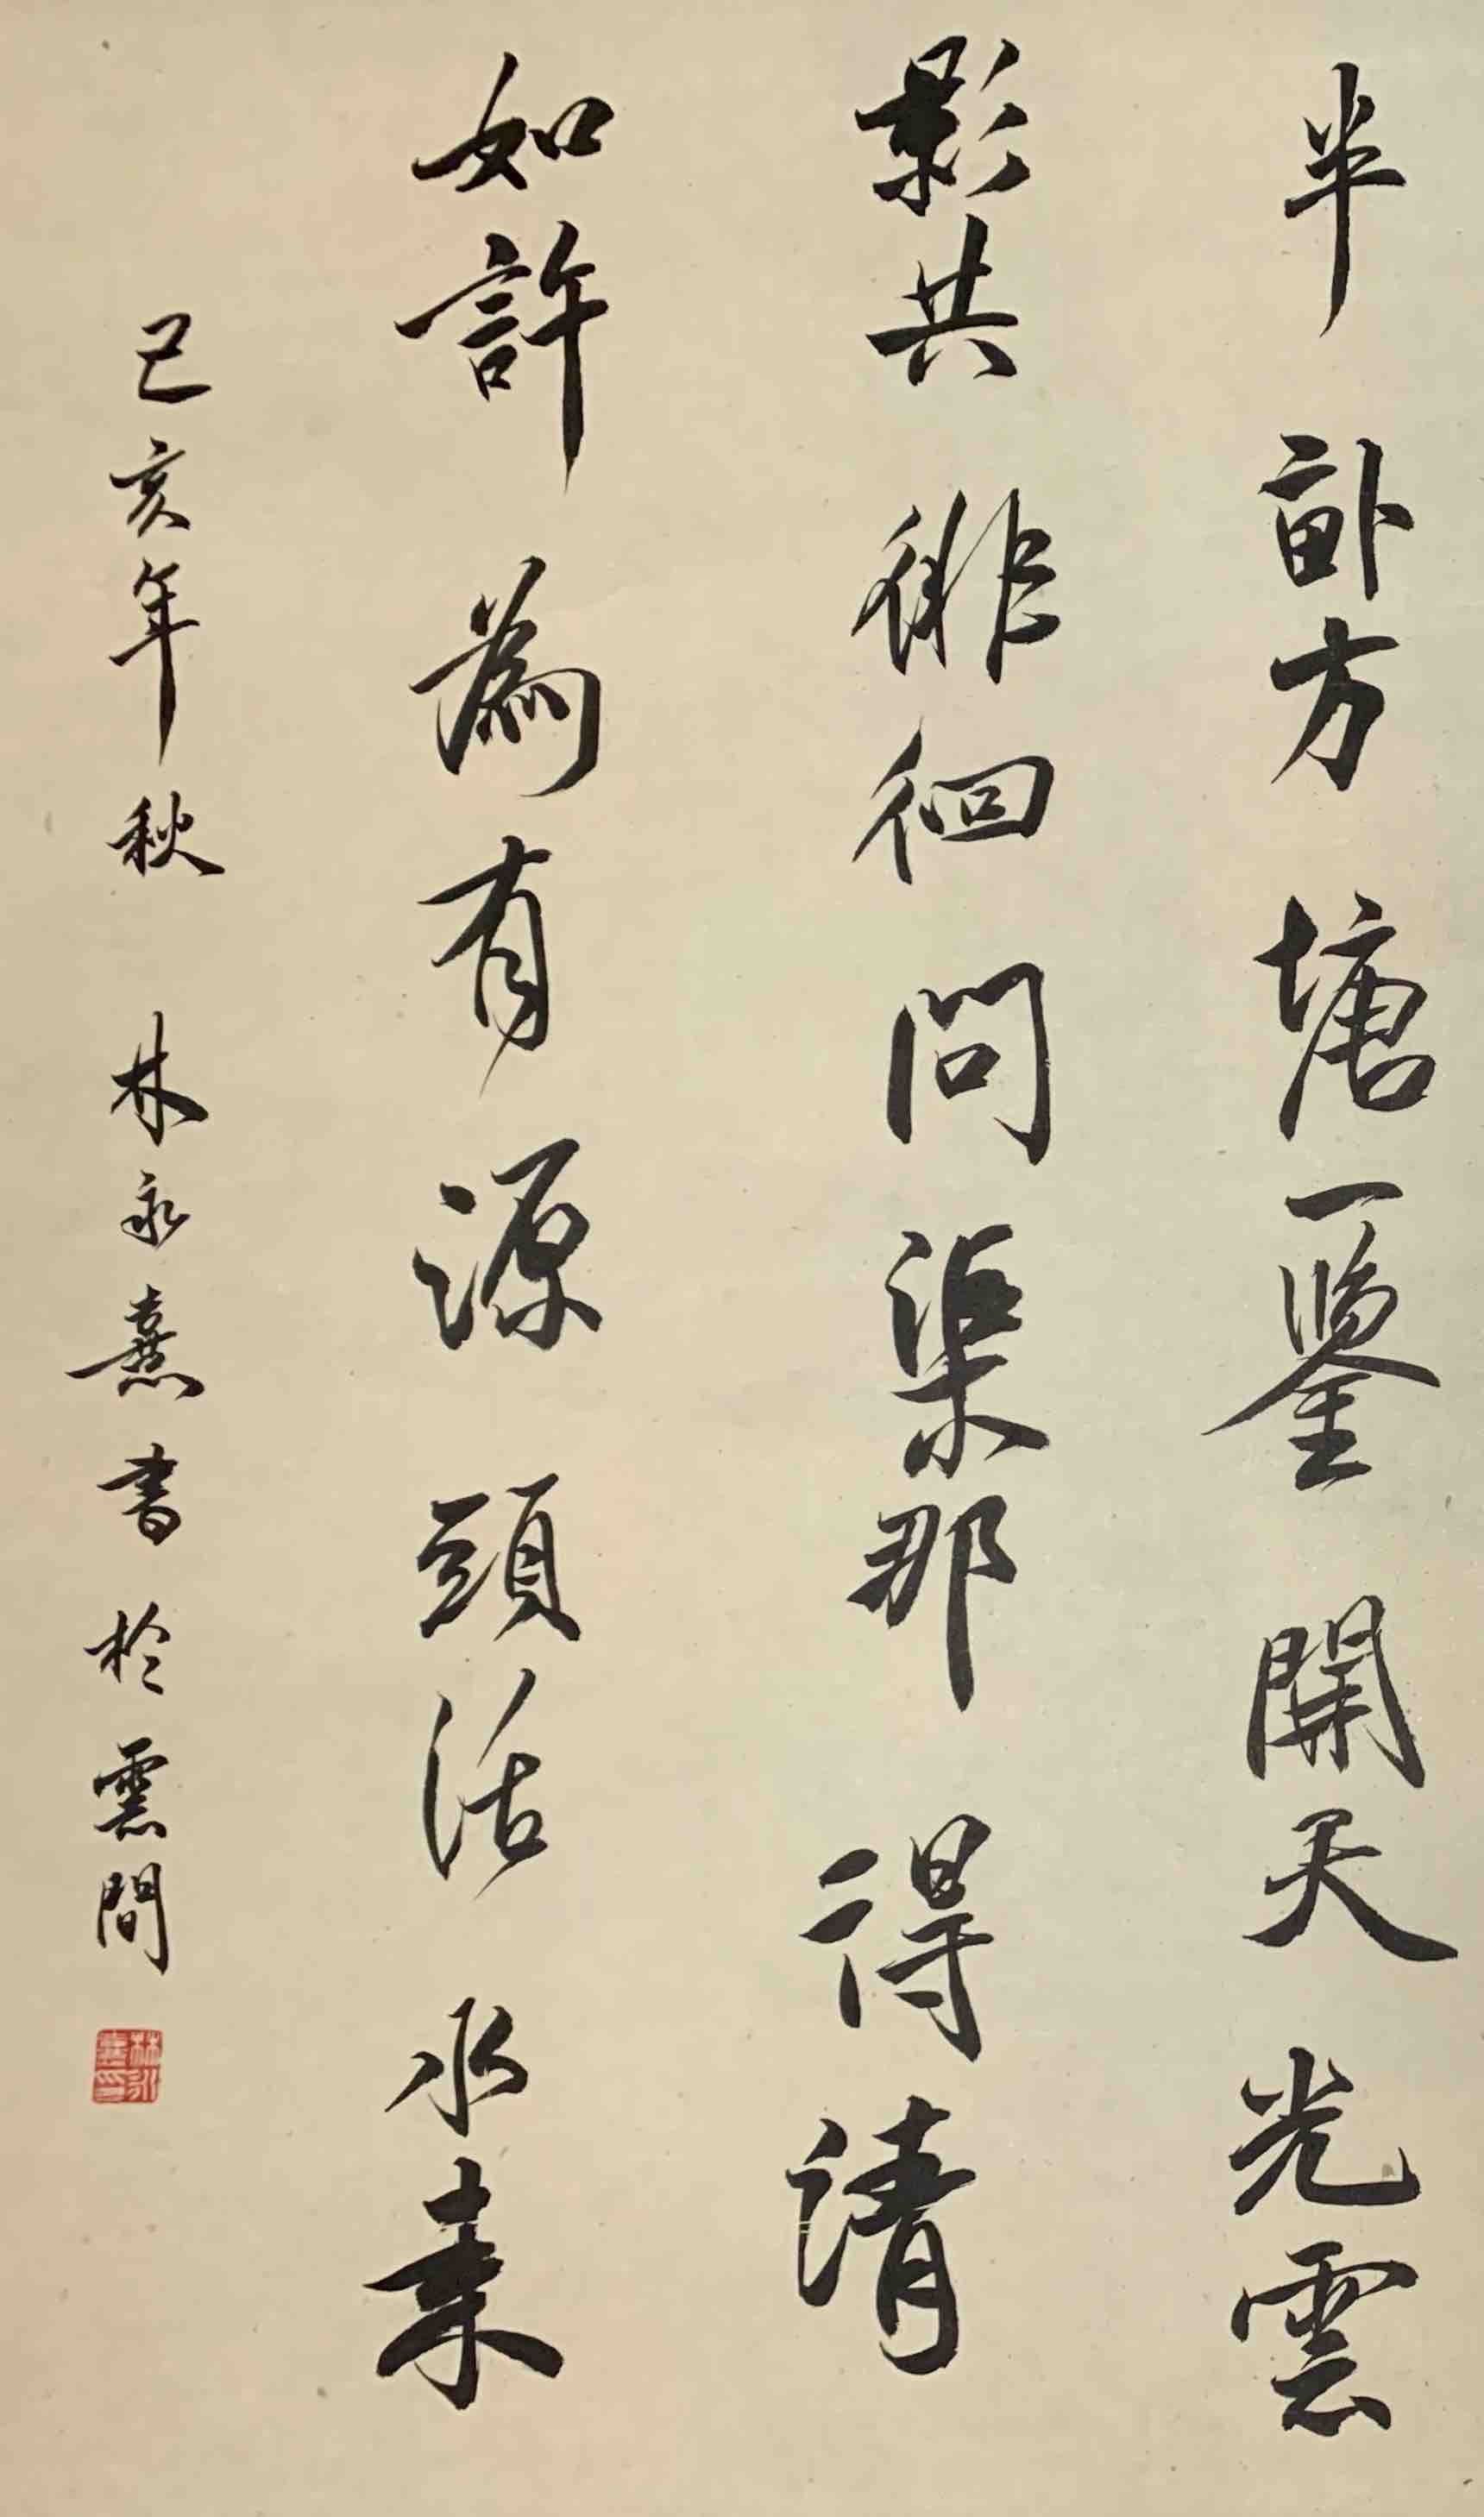 半畝方塘一鑒開天光雲
影共徘徊問渠那得清
如許為有源頭活水来
己亥年秋 林永熹書於雲間
林永熹印